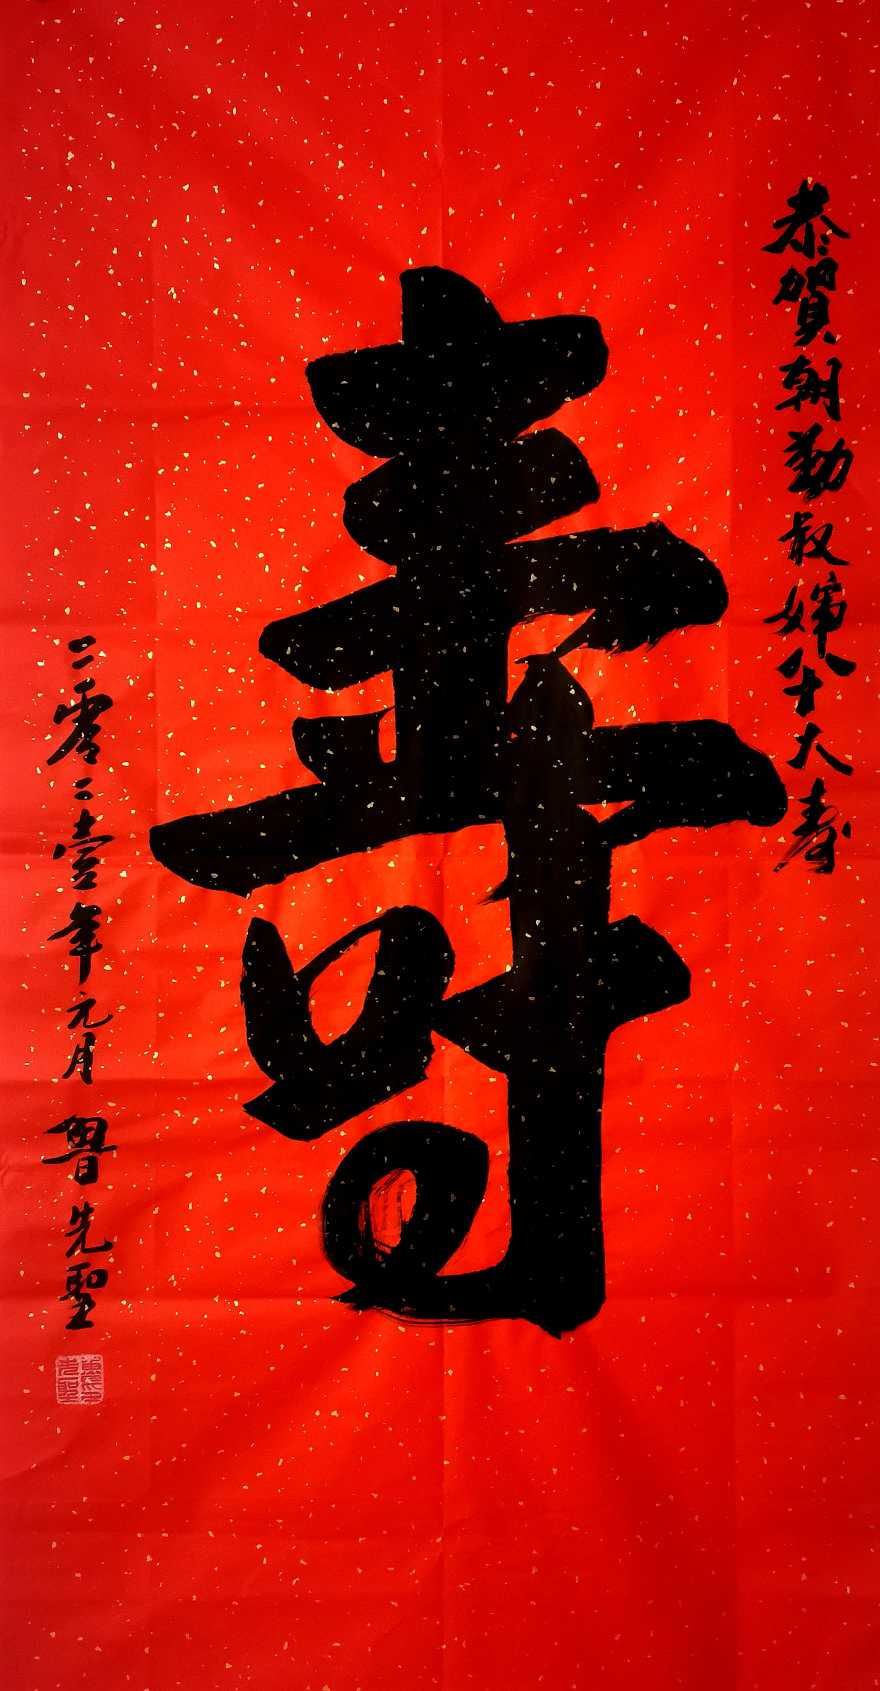 恭賀朝勤叔婶八十大寿
壽
二零二壹年元月 魯先聖